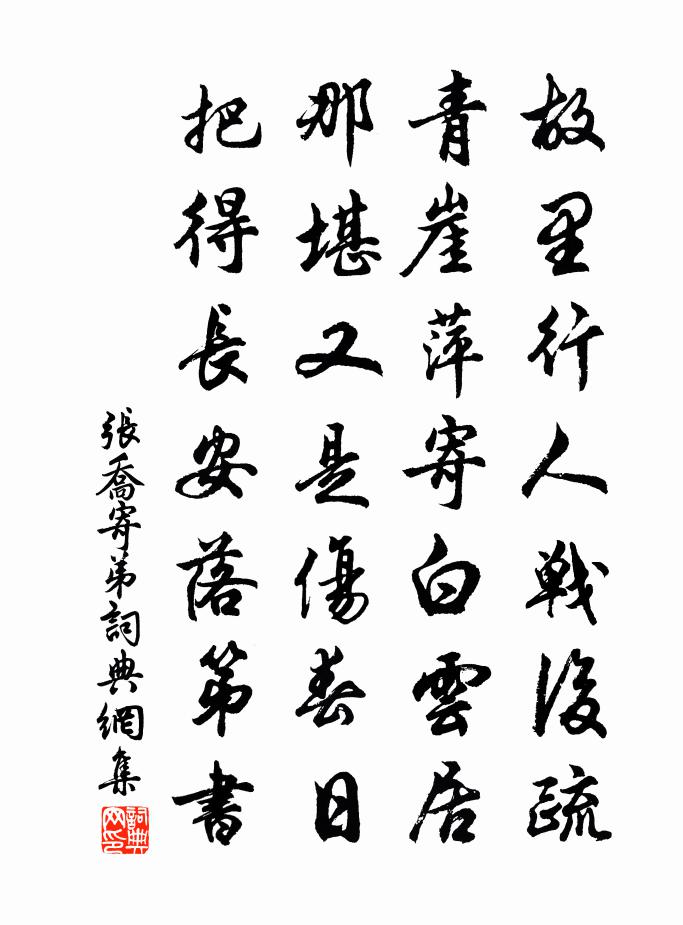 故里行人戰後疏
青崖萍寄白雲居
那堪又是傷春日
把得長安落第書
張喬寄弟詞典網集
詞典网印